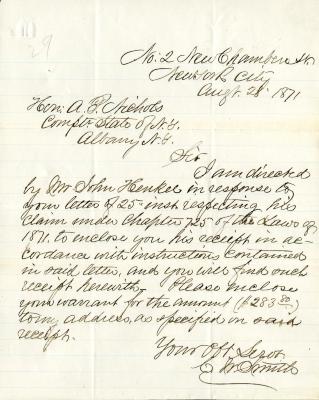 29
No. 2 New Chambers St.
New York City
Augt. 28. 1871
Hon. A. F. Nichols
Compt. State of N.Y.
Albany N.Y.
Sir
I am directed
by Mr John Henkel in response to
your letter of 25 inst respecting his
claim under Chapter 725 of the Laws of
1871. to enclose you his receipt in ac-
cordance with instructions contained
in said letter, and you will find such
receipt herewith. Please enclose
your warrant for the amount ($283.80)
to my address, as specified in said
receipt.
Your Obt Servt
Smith